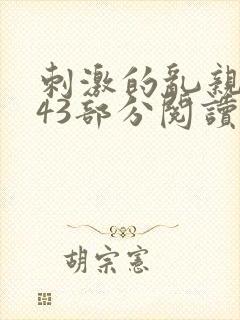 刺激的亂親
43部分閱讀
胡宗憲